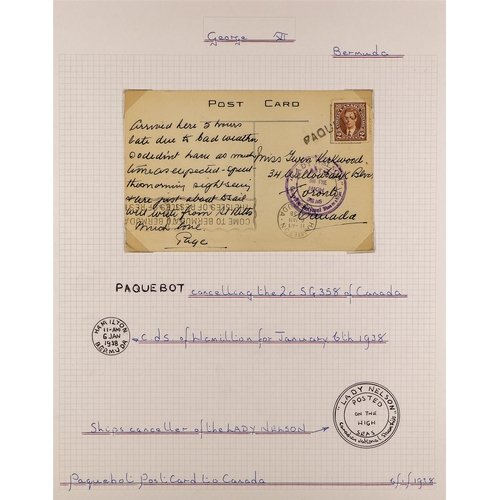 George VI
Bermuda
POST CARD
PAQUE
Arrived here 5 hours
late due to bad weather
so didnt have as much
time as expected - spent
the morning sight seeing
& are just about to sail
will write from St Kitts
Much love
Page
Miss Gwen Kirkwood
34
Toronto
Canada
COME TO BERMUDA
PAQUEBOT cancelling the 2c SG358 of Canada
HAMILTON
11-AM
6 JAN
1938
BERMUDA
c.d.s of Hamilton for January 6th 1938
"LADY NELSON"
POSTED
ON THE
HIGH
SEAS
Canadian National Steamships
Ships canceller of the LADY NELSON
Paquebot Post Card to Canada
6/1/1938